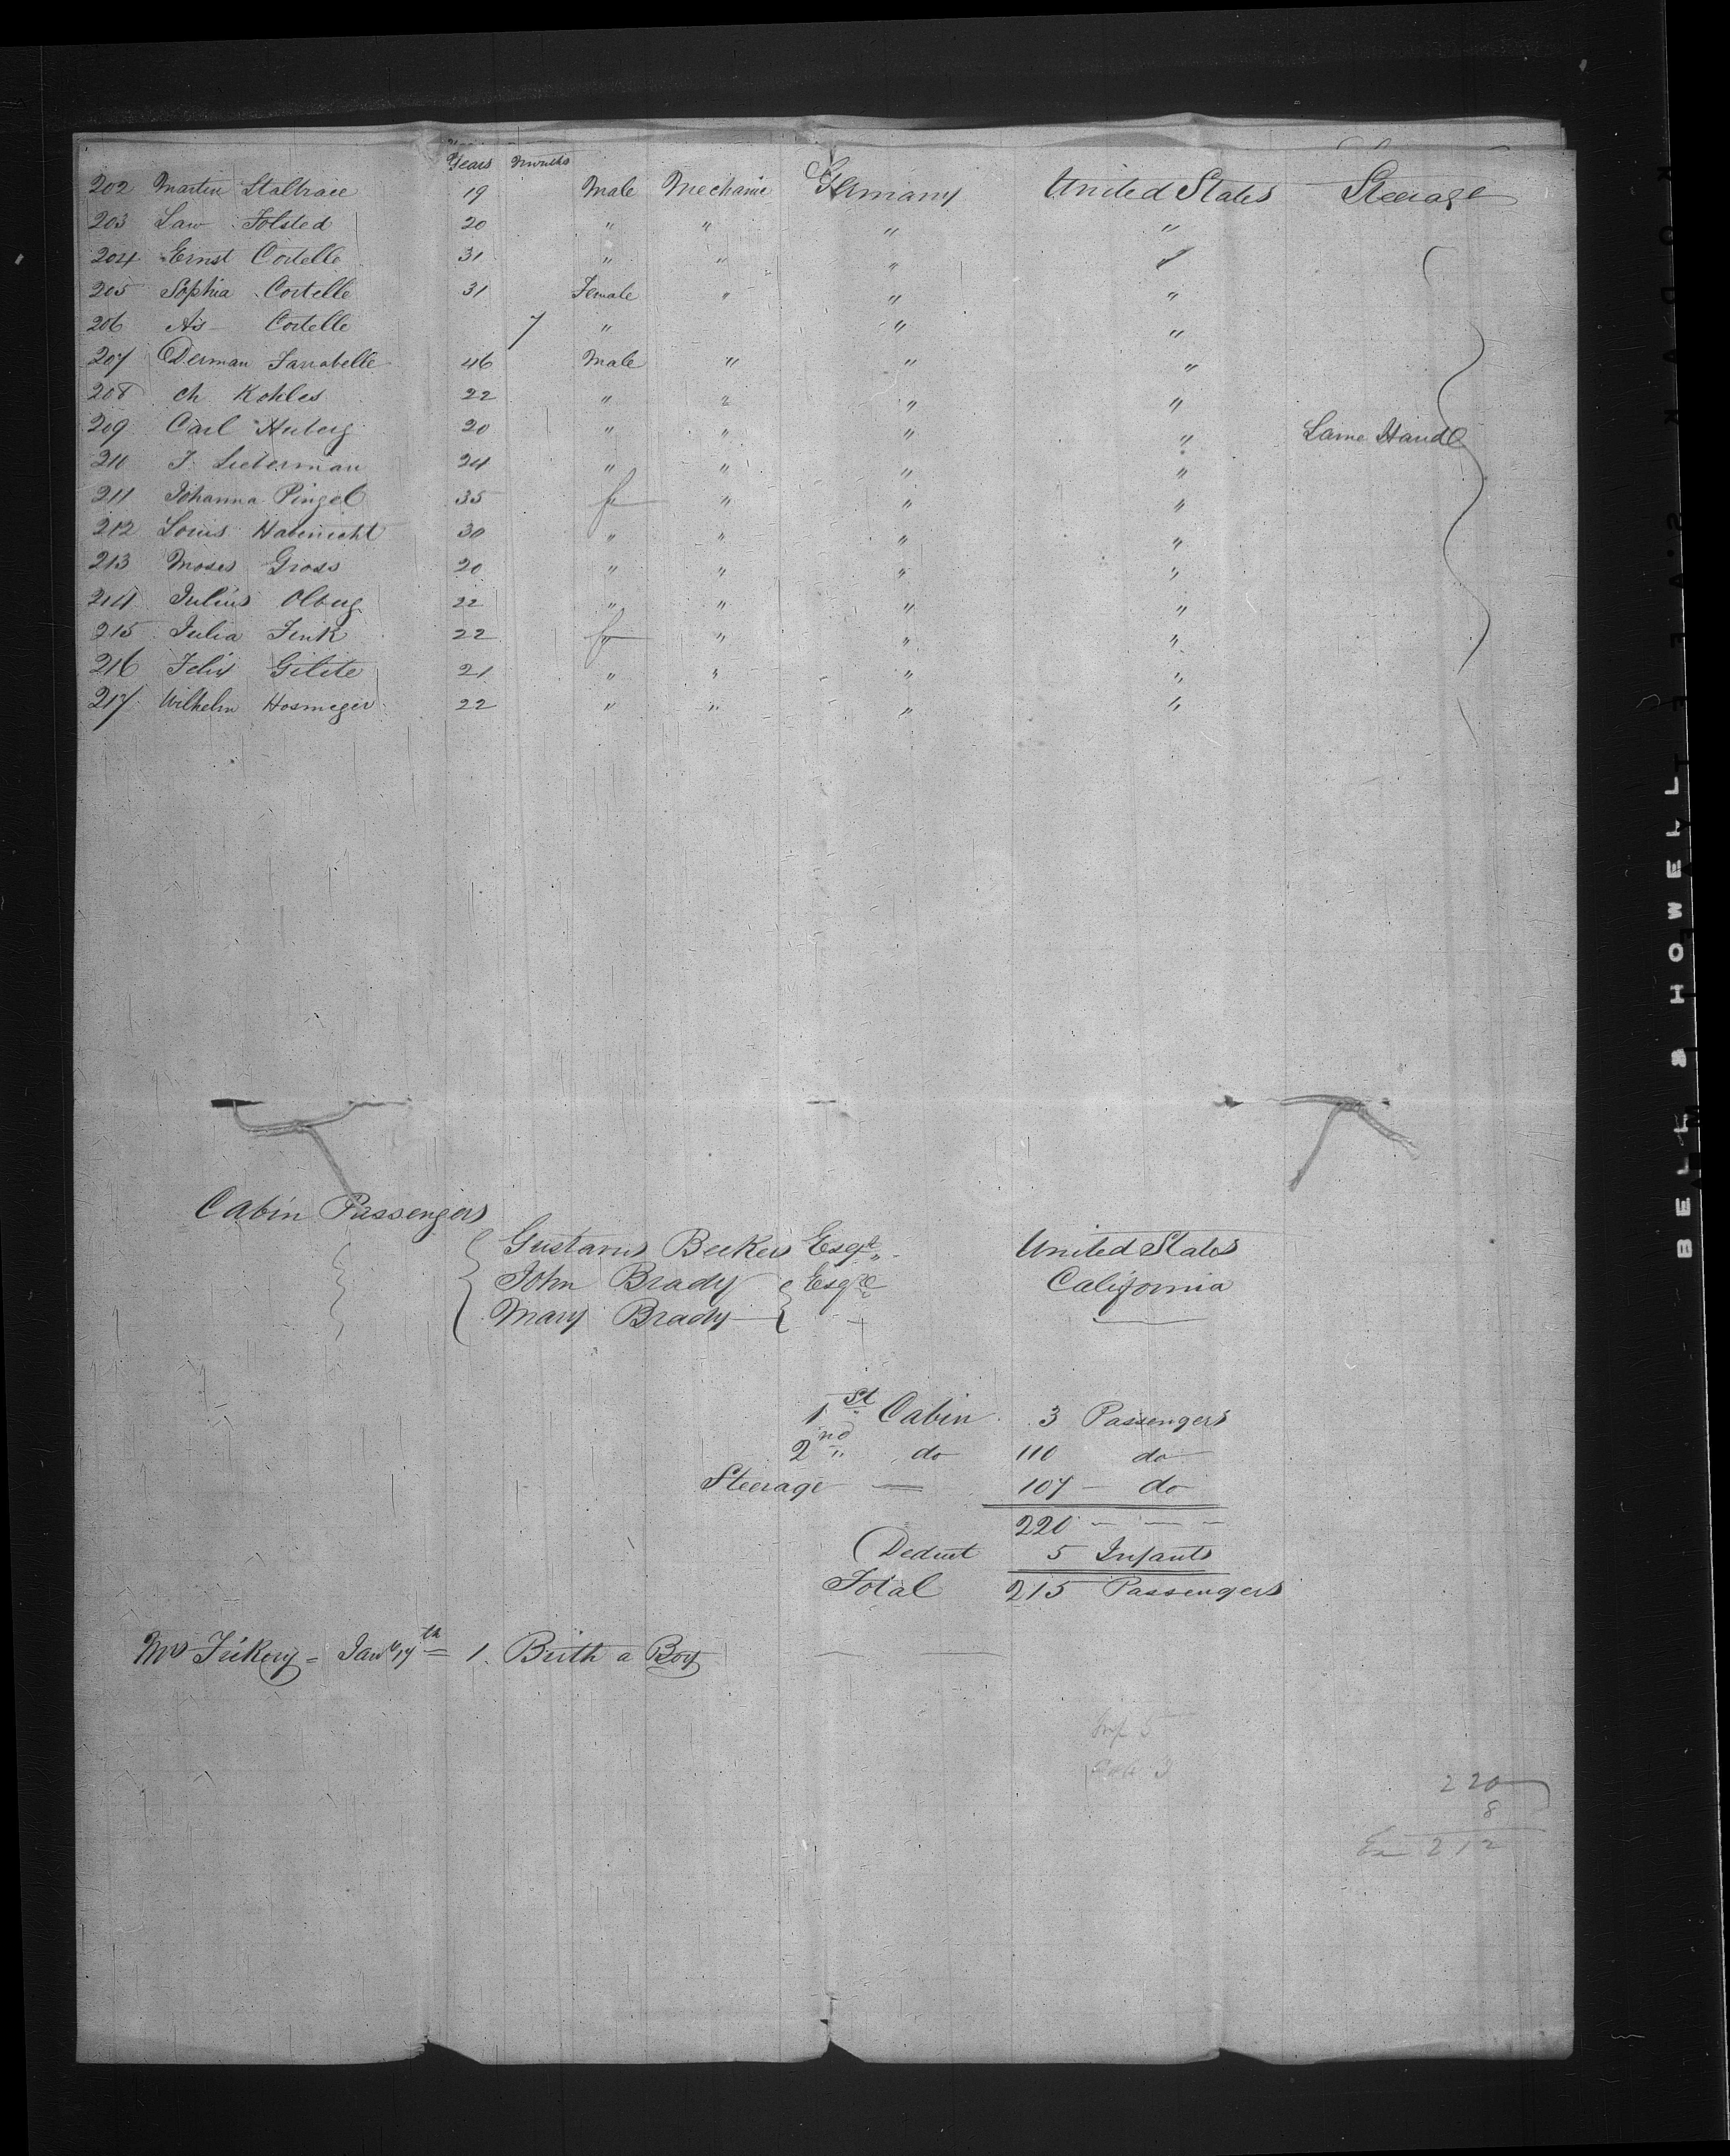 Years Months
202 Martin Stalbrace 19 Male Mechanic Germany United States Steerage
203 Law Folsted 20 " " " "
204 Ernst Cortelle 31 " " " "
205 Sophia Cortelle 31 Female " " "
206 As- Cortelle 7 " " "
207 Derman Farrabelle 46 Male " " "
208 Ch Kohles 22 " " " "
209 Carl Huberg 20 " " " " Lame Hand
210 J. Lieberman 24 " " " "
211 Johanna Pingel 35 f " " "
212 Louis Habenicht 30 " " " "
213 Moses Gross 20 " " " "
214 Julius Olberg 22 " " " "
215 Julia Fink 22 f " " "
216 Felix Gilete 21 " " " "
217 Wilhelm Hosmeger 22 " " " "
Cabin Passengers
Gustavus Beekers Esqr United States
John Brady Esqre California
Mary Brady
1st Cabin 3 Passengers
2nd do 110 do
Steerage — 107 — do
220 — — —
Deduct 5 Infants
Total 215 Passengers
Mrs - Jany 17th = 1. Birth a Boy
Inf 5
3
220
8
212
BELL & HOWELL